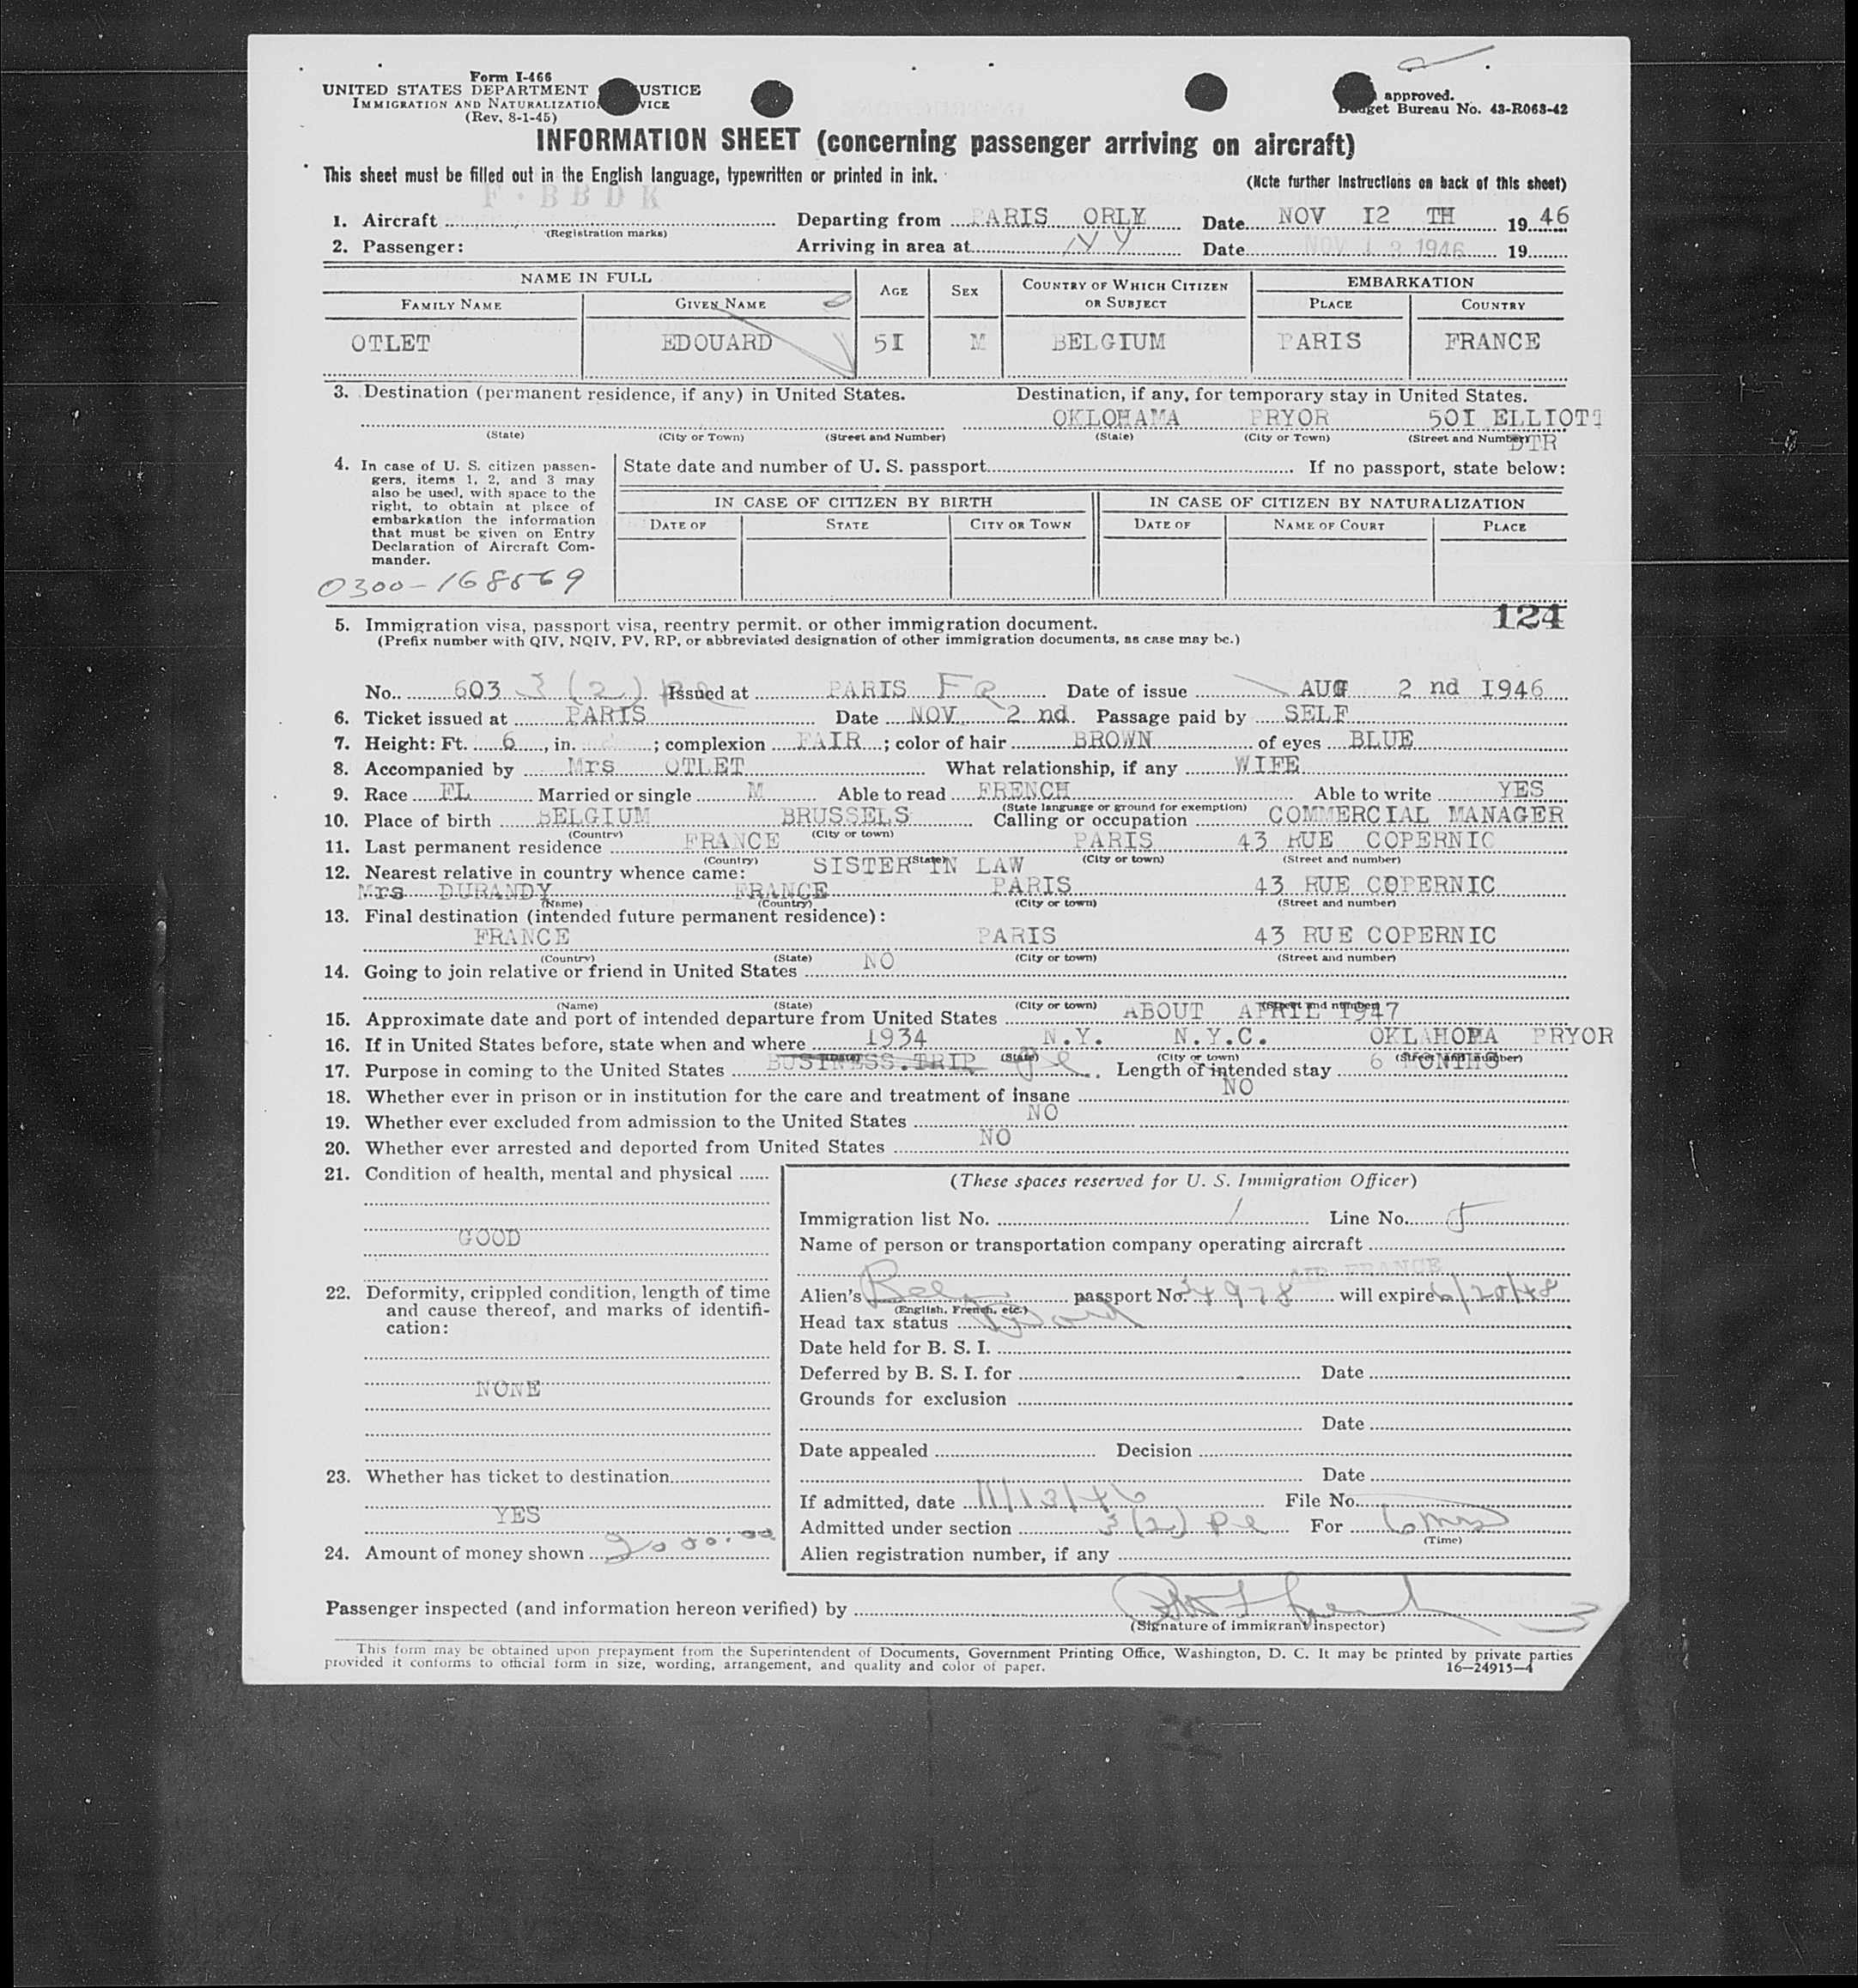 Form I-466
UNITED STATES DEPARTMENT USTICE
IMMIGRATION AND NATURALIZATIO VICE
(Rev. 8-1-45)
approved.
get Bureau No. 43-R063-42
INFORMATION SHEET (concerning passenger arriving on aircraft)
This sheet must be filled out in the English language, typewritten or printed in ink.
(Note further instructions on back of this sheet)
F·BBDK
1. Aircraft Departing from PARIS ORLY Date NOV I2 TH 1946
(Registration marks)
2. Passenger: Arriving in area at Date NOV 13 1946 19
NAME IN FULL AGE SEX COUNTRY OF WHICH CITIZEN OR SUBJECT EMBARKATION
FAMILY NAME GIVEN NAME PLACE COUNTRY
OTLET EDOUARD 5I M BELGIUM PARIS FRANCE
3. Destination (permanent residence, if any) in United States. Destination, if any, for temporary stay in United States.
OKLOHAMA PRYOR 50I ELLIOTT
(State) (City or Town) (Street and Number) (State) (City or Town) (Street and Number)
DTR
4. In case of U. S. citizen passengers, items 1, 2, and 3 may also be used, with space to the right, to obtain at place of embarkation the information that must be given on Entry Declaration of Aircraft Commander.
State date and number of U. S. passport If no passport, state below:
IN CASE OF CITIZEN BY BIRTH IN CASE OF CITIZEN BY NATURALIZATION
DATE OF STATE CITY OR TOWN DATE OF NAME OF COURT PLACE
0300-168569
124
5. Immigration visa, passport visa, reentry permit. or other immigration document.
(Prefix number with QIV, NQIV, PV, RP, or abbreviated designation of other immigration documents, as case may be.)
No. 603 3(2) Issued at PARIS FR Date of issue AUG 2 nd I946
6. Ticket issued at PARIS Date NOV 2 nd. Passage paid by SELF
7. Height: Ft. 6, in. ; complexion FAIR ; color of hair BROWN of eyes BLUE
8. Accompanied by Mrs OTLET What relationship, if any WIFE
9. Race FL Married or single M Able to read FRENCH Able to write YES
(State language or ground for exemption)
10. Place of birth BELGIUM BRUSSELS Calling or occupation COMMERCIAL MANAGER
(Country) (City or town)
11. Last permanent residence FRANCE PARIS 43 RUE COPERNIC
(Country) (State) (City or town) (Street and number)
12. Nearest relative in country whence came: SISTER IN LAW
Mrs DURANDY FRANCE PARIS 43 RUE COPERNIC
(Name) (Country) (City or town) (Street and number)
13. Final destination (intended future permanent residence):
FRANCE PARIS 43 RUE COPERNIC
(Country) (State) (City or town) (Street and number)
14. Going to join relative or friend in United States NO
(Name) (State) (City or town) (Street and number)
15. Approximate date and port of intended departure from United States ABOUT APRIL 1947
16. If in United States before, state when and where 1934 N.Y. N.Y.C. OKLAHOMA PRYOR
(Date) (State) (City or town) (Street and number)
17. Purpose in coming to the United States BUSINESS.TRIP Length of intended stay 6 MONTHS
18. Whether ever in prison or in institution for the care and treatment of insane NO
19. Whether ever excluded from admission to the United States NO
20. Whether ever arrested and deported from United States NO
21. Condition of health, mental and physical
GOOD
22. Deformity, crippled condition, length of time and cause thereof, and marks of identification:
NONE
23. Whether has ticket to destination
YES
24. Amount of money shown 2000.00
(These spaces reserved for U. S. Immigration Officer)
Immigration list No. 1 Line No. 5
Name of person or transportation company operating aircraft
AIR FRANCE
Alien's Belg passport No. 34978 will expire 6/20/48
(English, French, etc.)
Head tax status
Date held for B. S. I.
Deferred by B. S. I. for Date
Grounds for exclusion
Date
Date appealed Decision
Date
If admitted, date 11/13/46 File No.
Admitted under section 3(2) Pl For 6 mos
(Time)
Alien registration number, if any
Passenger inspected (and information hereon verified) by
(Signature of immigrant inspector)
3
This form may be obtained upon prepayment from the Superintendent of Documents, Government Printing Office, Washington, D. C. It may be printed by private parties
provided it conforms to official form in size, wording, arrangement, and quality and color of paper.
16—24915-4